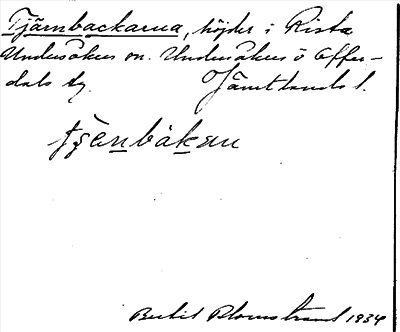 Tjärnbackarna, höjder i Rista
Undersåkers sn. Undersåkers o Offer-
dals tg. Jämtlands l.
Bertil Blomstrand 1934